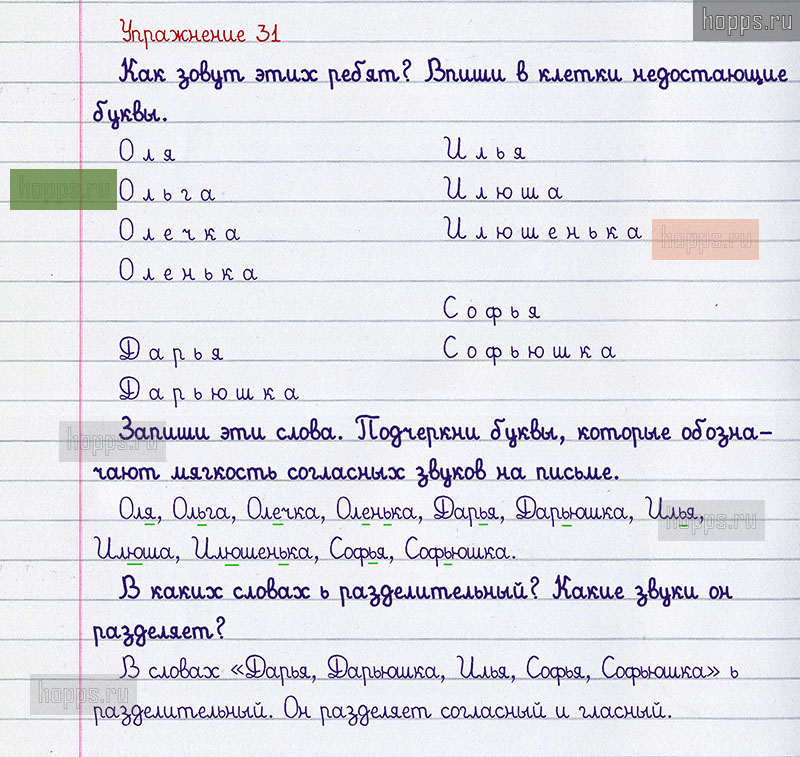 hopps.ru
Упражнение 31
Как зовут этих ребят? Впиши в клетки недостающие
буквы.
Оля Илья
hopps.ru
Ольга Илюша
Олечка Илюшенька
hopps.ru
Оленька
Софья
Дарья Софьюшка
Дарьюшка
Запиши эти слова. Подчеркни буквы, которые обозна-
hopps.ru
чают мягкость согласных звуков на письме.
Оля, Ольга, Олечка, Оленька, Дарья, Дарьюшка, Илья,
hopps.ru
Илюша, Илюшенька, Софья, Софьюшка.
В каких словах ь разделительный? Какие звуки он
разделяет?
В словах «Дарья, Дарьюшка, Илья, Софья, Софьюшка» ь
hopps.ru
разделительный. Он разделяет согласный и гласный.